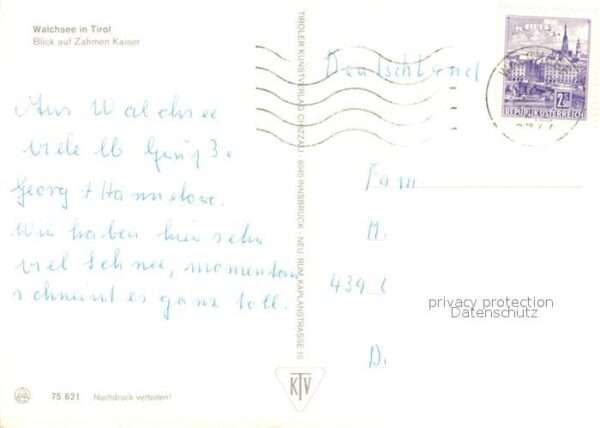 Walchsee in Tirol
Blick auf Zahmen Kaiser
Aus Walchsee
viele lb Grüße
Georg + Hannelore.
Wir haben hier sehr
viel Schnee, momentan
schneint es ganz toll.
75 621 Nachdruck verboten!
TIROLER KUNSTVERLAG CHIZZALI · 6040 INNSBRUCK - NEU RUM, KAPLANSTRASSE
KTV
Deutschland
2.50
REPUBLIK ÖSTERREICH
Fam
H.
439
D.
privacy protection
Datenschutz